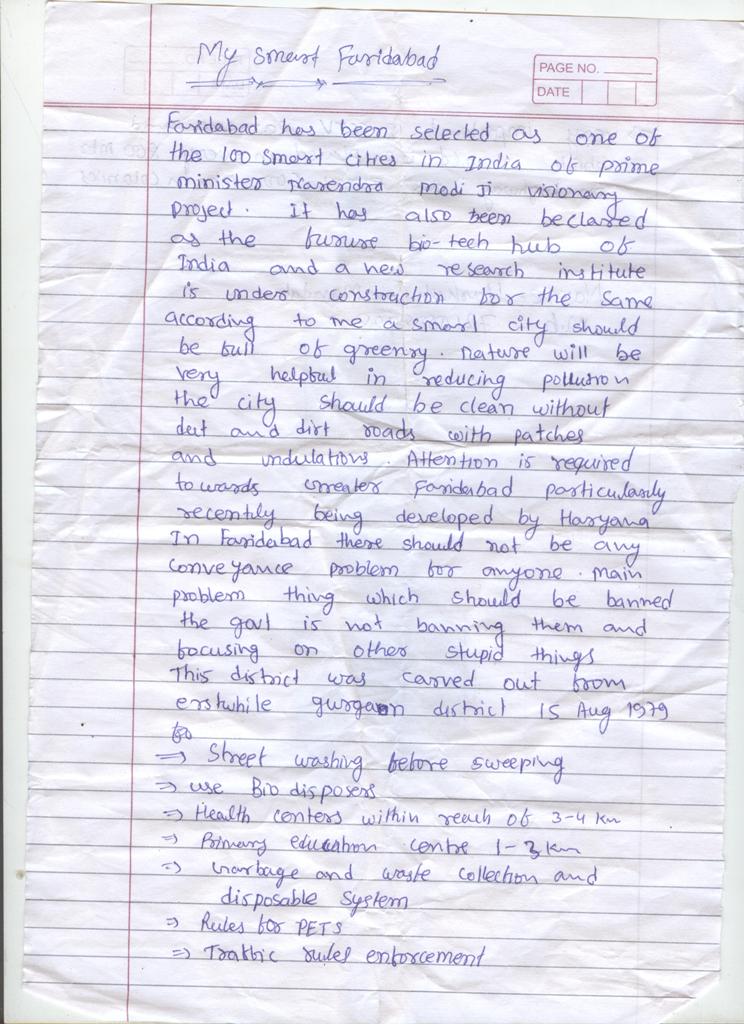 My smart Faridabad
PAGE NO.
DATE
Faridabad has been selected as one of
the 100 smart cities in India of prime
minister Narendra modi Ji visionary
project. it has also been beclared
as the furure bio-tech hub of
India and a new research institute
is under construction for the same
according to me a smart city should
be full of greenry. nature will be
very helpful in reducing pollution
the city should be clean without
dut and dirt roads with patches
and undulations. Attention is required
towards Greater Faridabad particularly
recently being developed by Haryana
In Faridabad there should not be any
conveyance problem for anyone. main
problem thing which should be banned
the govt is not banning them and
focusing on other stupid things
This district was carved out from
erstwhile gurgaon district 15 Aug 1979
⇒ Street washing before sweeping
⇒ use Bio disposers
⇒ Health centers within reach of 3-4 km
⇒ Primary education centre 1-3 km
⇒ Garbage and waste collection and
disposable system
⇒ Rules for PETS
⇒ Traffic rules enforcement